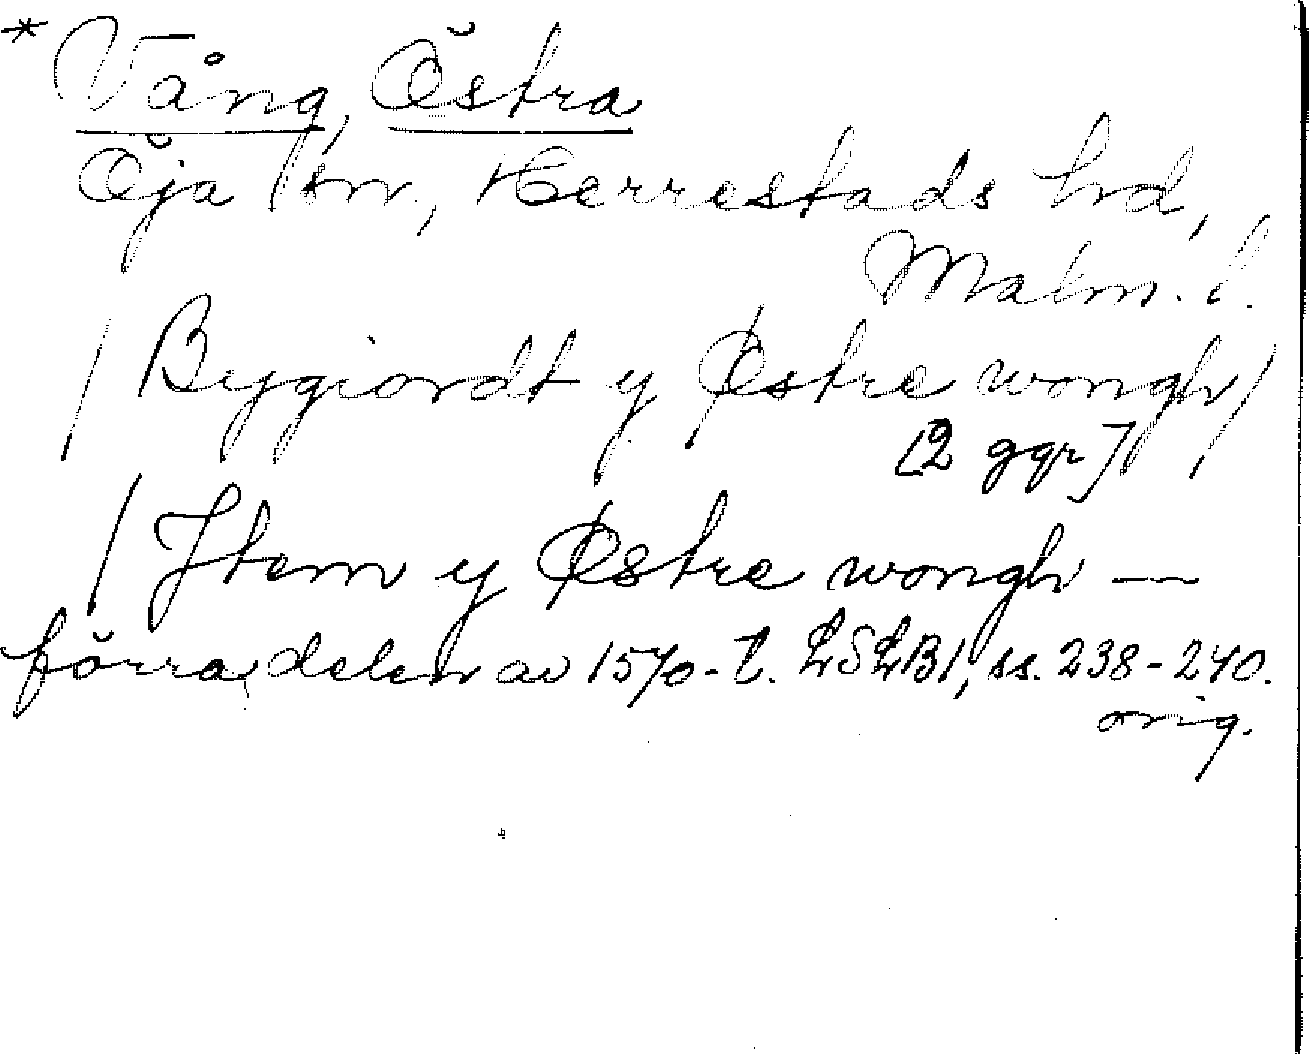 * Vång, Östra
Öja sn., Herrestads hd,
Malm. l.
/ Bygiordt y Østre wongh /
[2 ggr]
/ Jtem y Østre wongh —
förra delen av 1570-t. LSLB1, ss. 238-240.
orig.